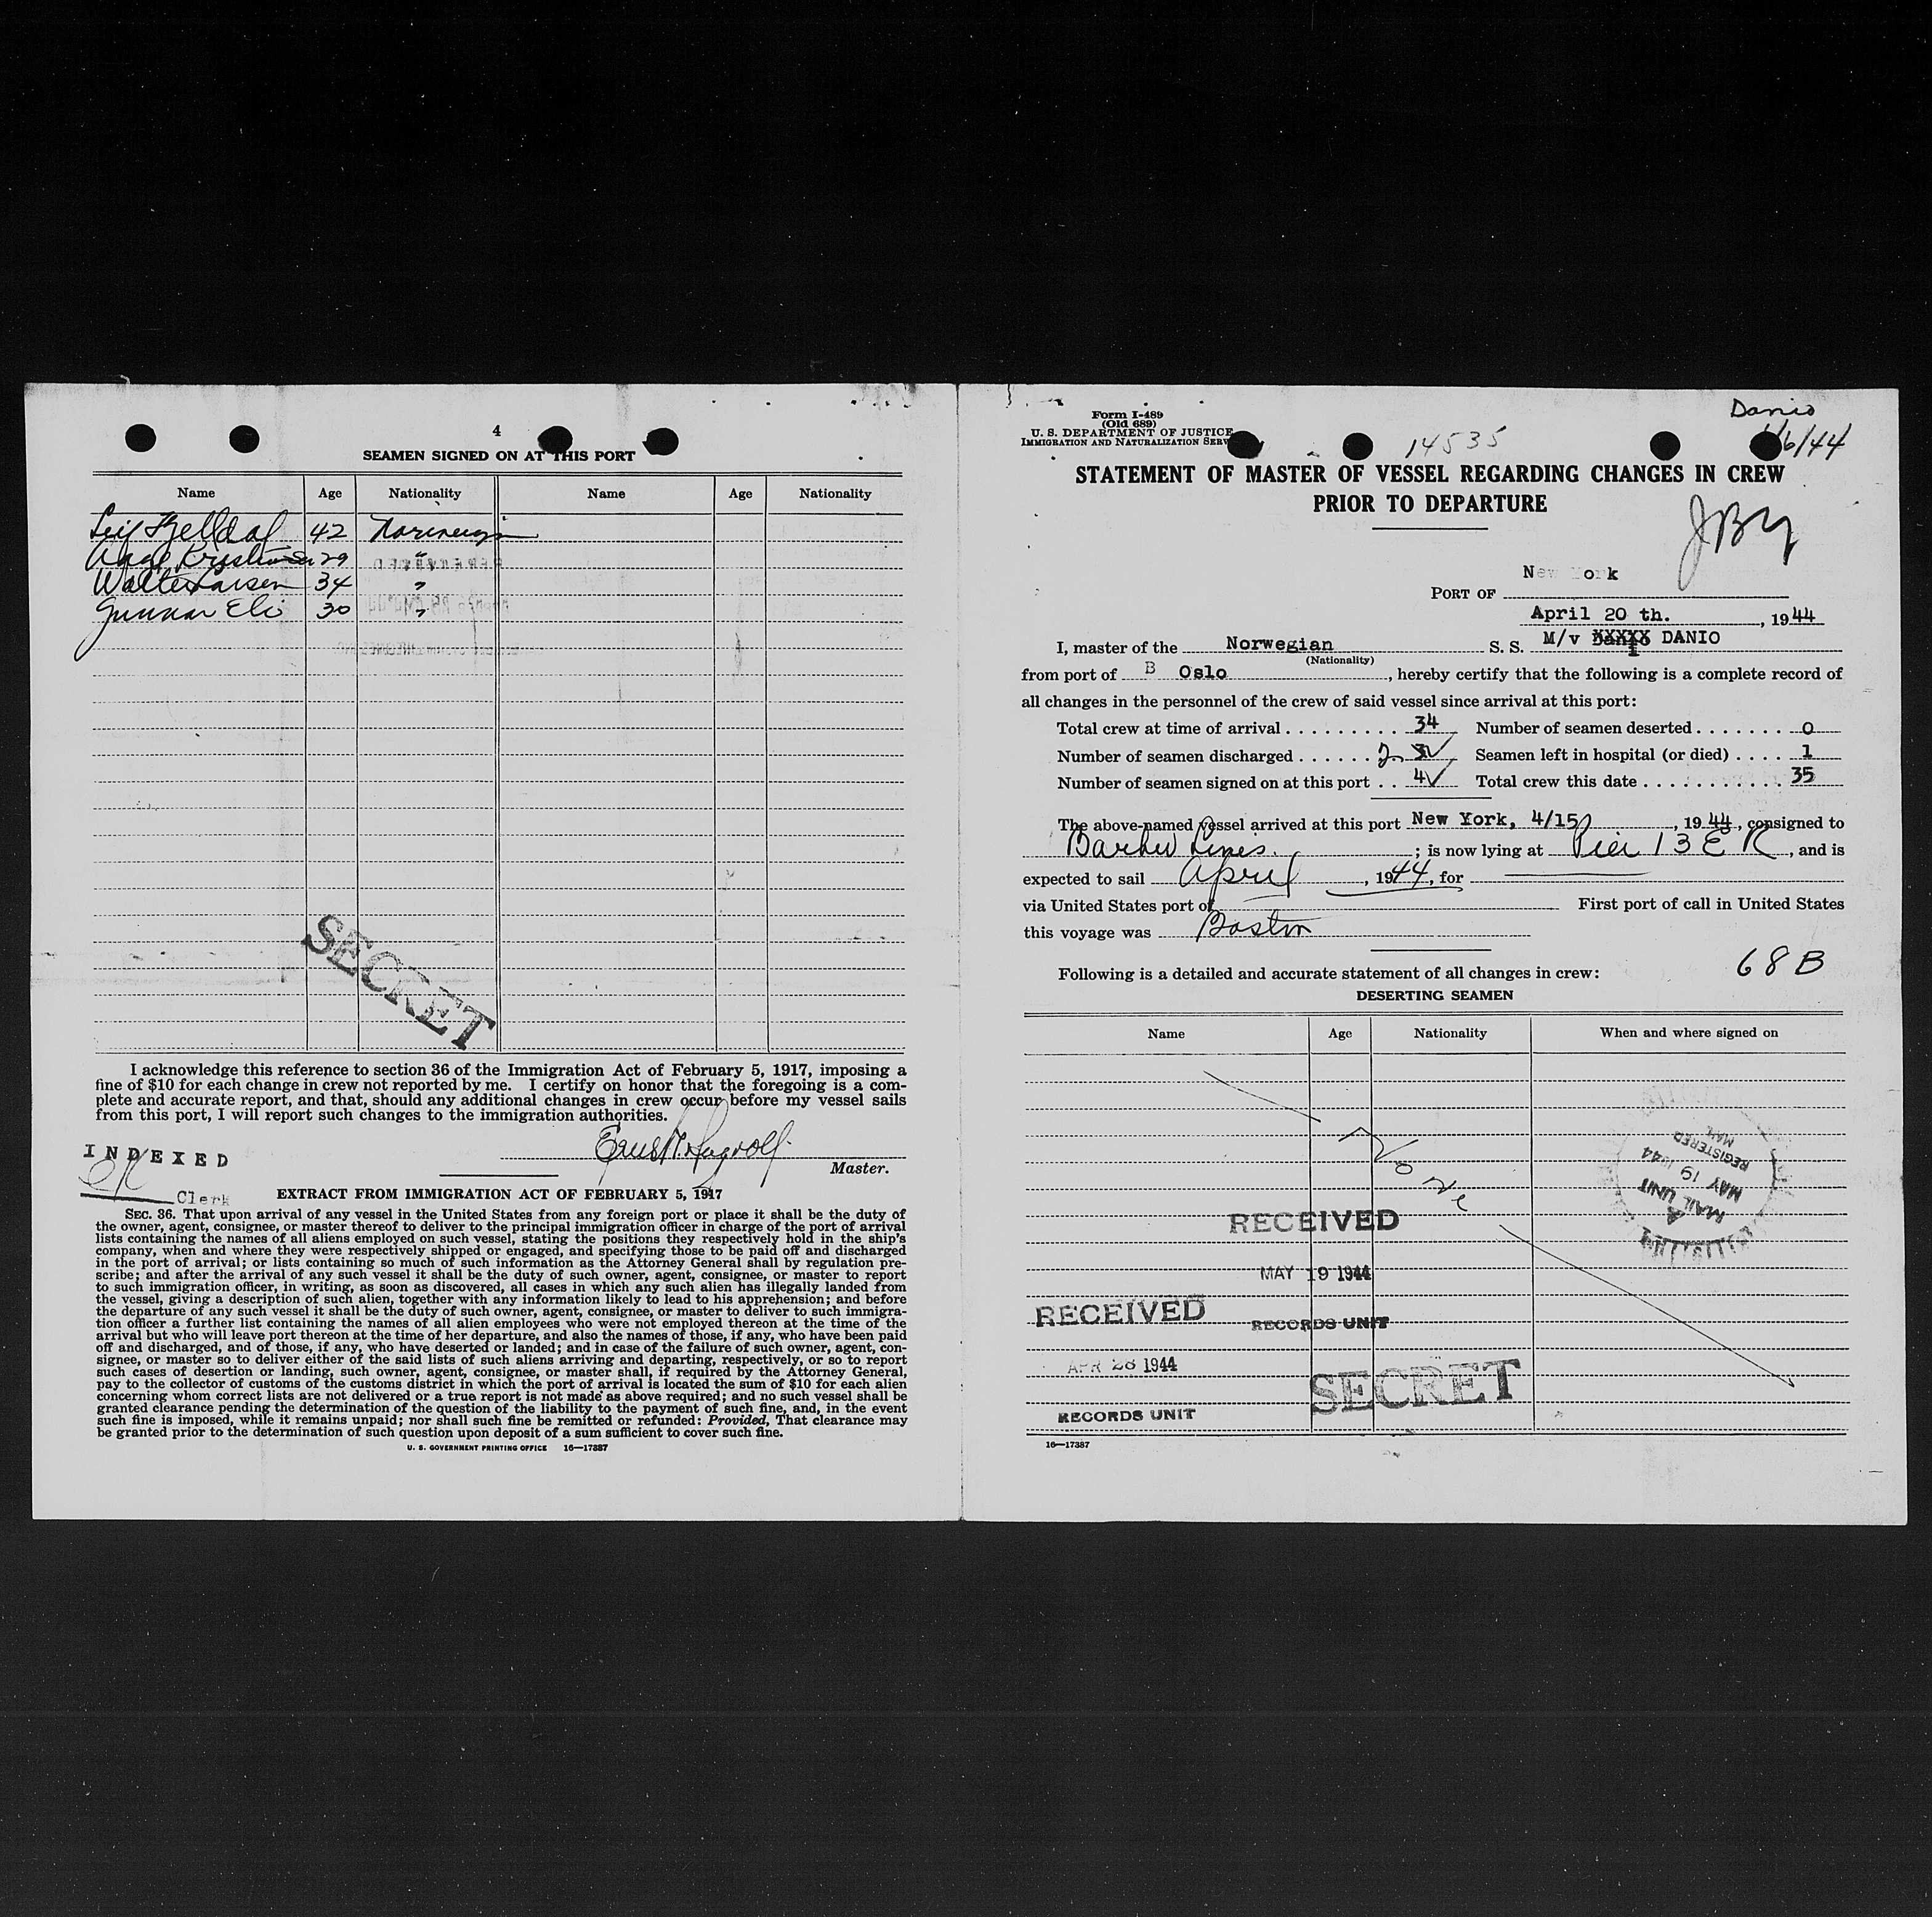 4
SEAMEN SIGNED ON AT THIS PORT
Name Age Nationality Name Age Nationality
Leif Kjelldal 42 Norwegian
Aage Kristiansen 29 "
Walter Larsen 34 "
Gunnar Eli 30 "
SECRET
I acknowledge this reference to section 36 of the Immigration Act of February 5, 1917, imposing a
fine of $10 for each change in crew not reported by me. I certify on honor that the foregoing is a com-
plete and accurate report, and that, should any additional changes in crew occur before my vessel sails
from this port, I will report such changes to the immigration authorities.
Master.
INDEXED
Clerk
EXTRACT FROM IMMIGRATION ACT OF FEBRUARY 5, 1917
SEC. 36. That upon arrival of any vessel in the United States from any foreign port or place it shall be the duty of
the owner, agent, consignee, or master thereof to deliver to the principal immigration officer in charge of the port of arrival
lists containing the names of all aliens employed on such vessel, stating the positions they respectively hold in the ship's
company, when and where they were respectively shipped or engaged, and specifying those to be paid off and discharged
in the port of arrival; or lists containing so much of such information as the Attorney General shall by regulation pre-
scribe; and after the arrival of any such vessel it shall be the duty of such owner, agent, consignee, or master to report
to such immigration officer, in writing, as soon as discovered, all cases in which any such alien has illegally landed from
the vessel, giving a description of such alien, together with any information likely to lead to his apprehension; and before
the departure of any such vessel it shall be the duty of such owner, agent, consignee, or master to deliver to such immigra-
tion officer a further list containing the names of all alien employees who were not employed thereon at the time of the
arrival but who will leave port thereon at the time of her departure, and also the names of those, if any, who have been paid
off and discharged, and of those, if any, who have deserted or landed; and in case of the failure of such owner, agent, con-
signee, or master so to deliver either of the said lists of such aliens arriving and departing, respectively, or so to report
such cases of desertion or landing, such owner, agent, consignee, or master shall, if required by the Attorney General,
pay to the collector of customs of the customs district in which the port of arrival is located the sum of $10 for each alien
concerning whom correct lists are not delivered or a true report is not made as above required; and no such vessel shall be
granted clearance pending the determination of the question of the liability to the payment of such fine, and, in the event
such fine is imposed, while it remains unpaid; nor shall such fine be remitted or refunded: Provided, That clearance may
be granted prior to the determination of such question upon deposit of a sum sufficient to cover such fine.
U. S. GOVERNMENT PRINTING OFFICE 16—17387
Form I-489
(Old 689)
U. S. DEPARTMENT OF JUSTICE
IMMIGRATION AND NATURALIZATION SERV
14535
Danio
/6/44
STATEMENT OF MASTER OF VESSEL REGARDING CHANGES IN CREW
PRIOR TO DEPARTURE
JBY
PORT OF New York
April 20 th. , 1944
I, master of the Norwegian S. S. M/v DANIO
(Nationality)
from port of B Oslo , hereby certify that the following is a complete record of
all changes in the personnel of the crew of said vessel since arrival at this port:
Total crew at time of arrival . . . . . . . . . . 34 Number of seamen deserted . . . . . . . 0
Number of seamen discharged . . . . . . 2 3 Seamen left in hospital (or died) . . . . 1
Number of seamen signed on at this port . . 4 Total crew this date . . . . . . . . . . . 35
The above-named vessel arrived at this port New York, 4/15 , 1944, consigned to
Barber Lines. ; is now lying at Pier 13 E R , and is
expected to sail April , 1944, for
via United States port of First port of call in United States
this voyage was Boston
Following is a detailed and accurate statement of all changes in crew:
68 B
DESERTING SEAMEN
Name Age Nationality When and where signed on
None
REGISTERED
MAIL
MAY 19 1944
MAIL UNIT
A
RECEIVED
MAY 19 1944
RECORDS UNIT
RECEIVED
APR 28 1944
RECORDS UNIT
SECRET
16—17387